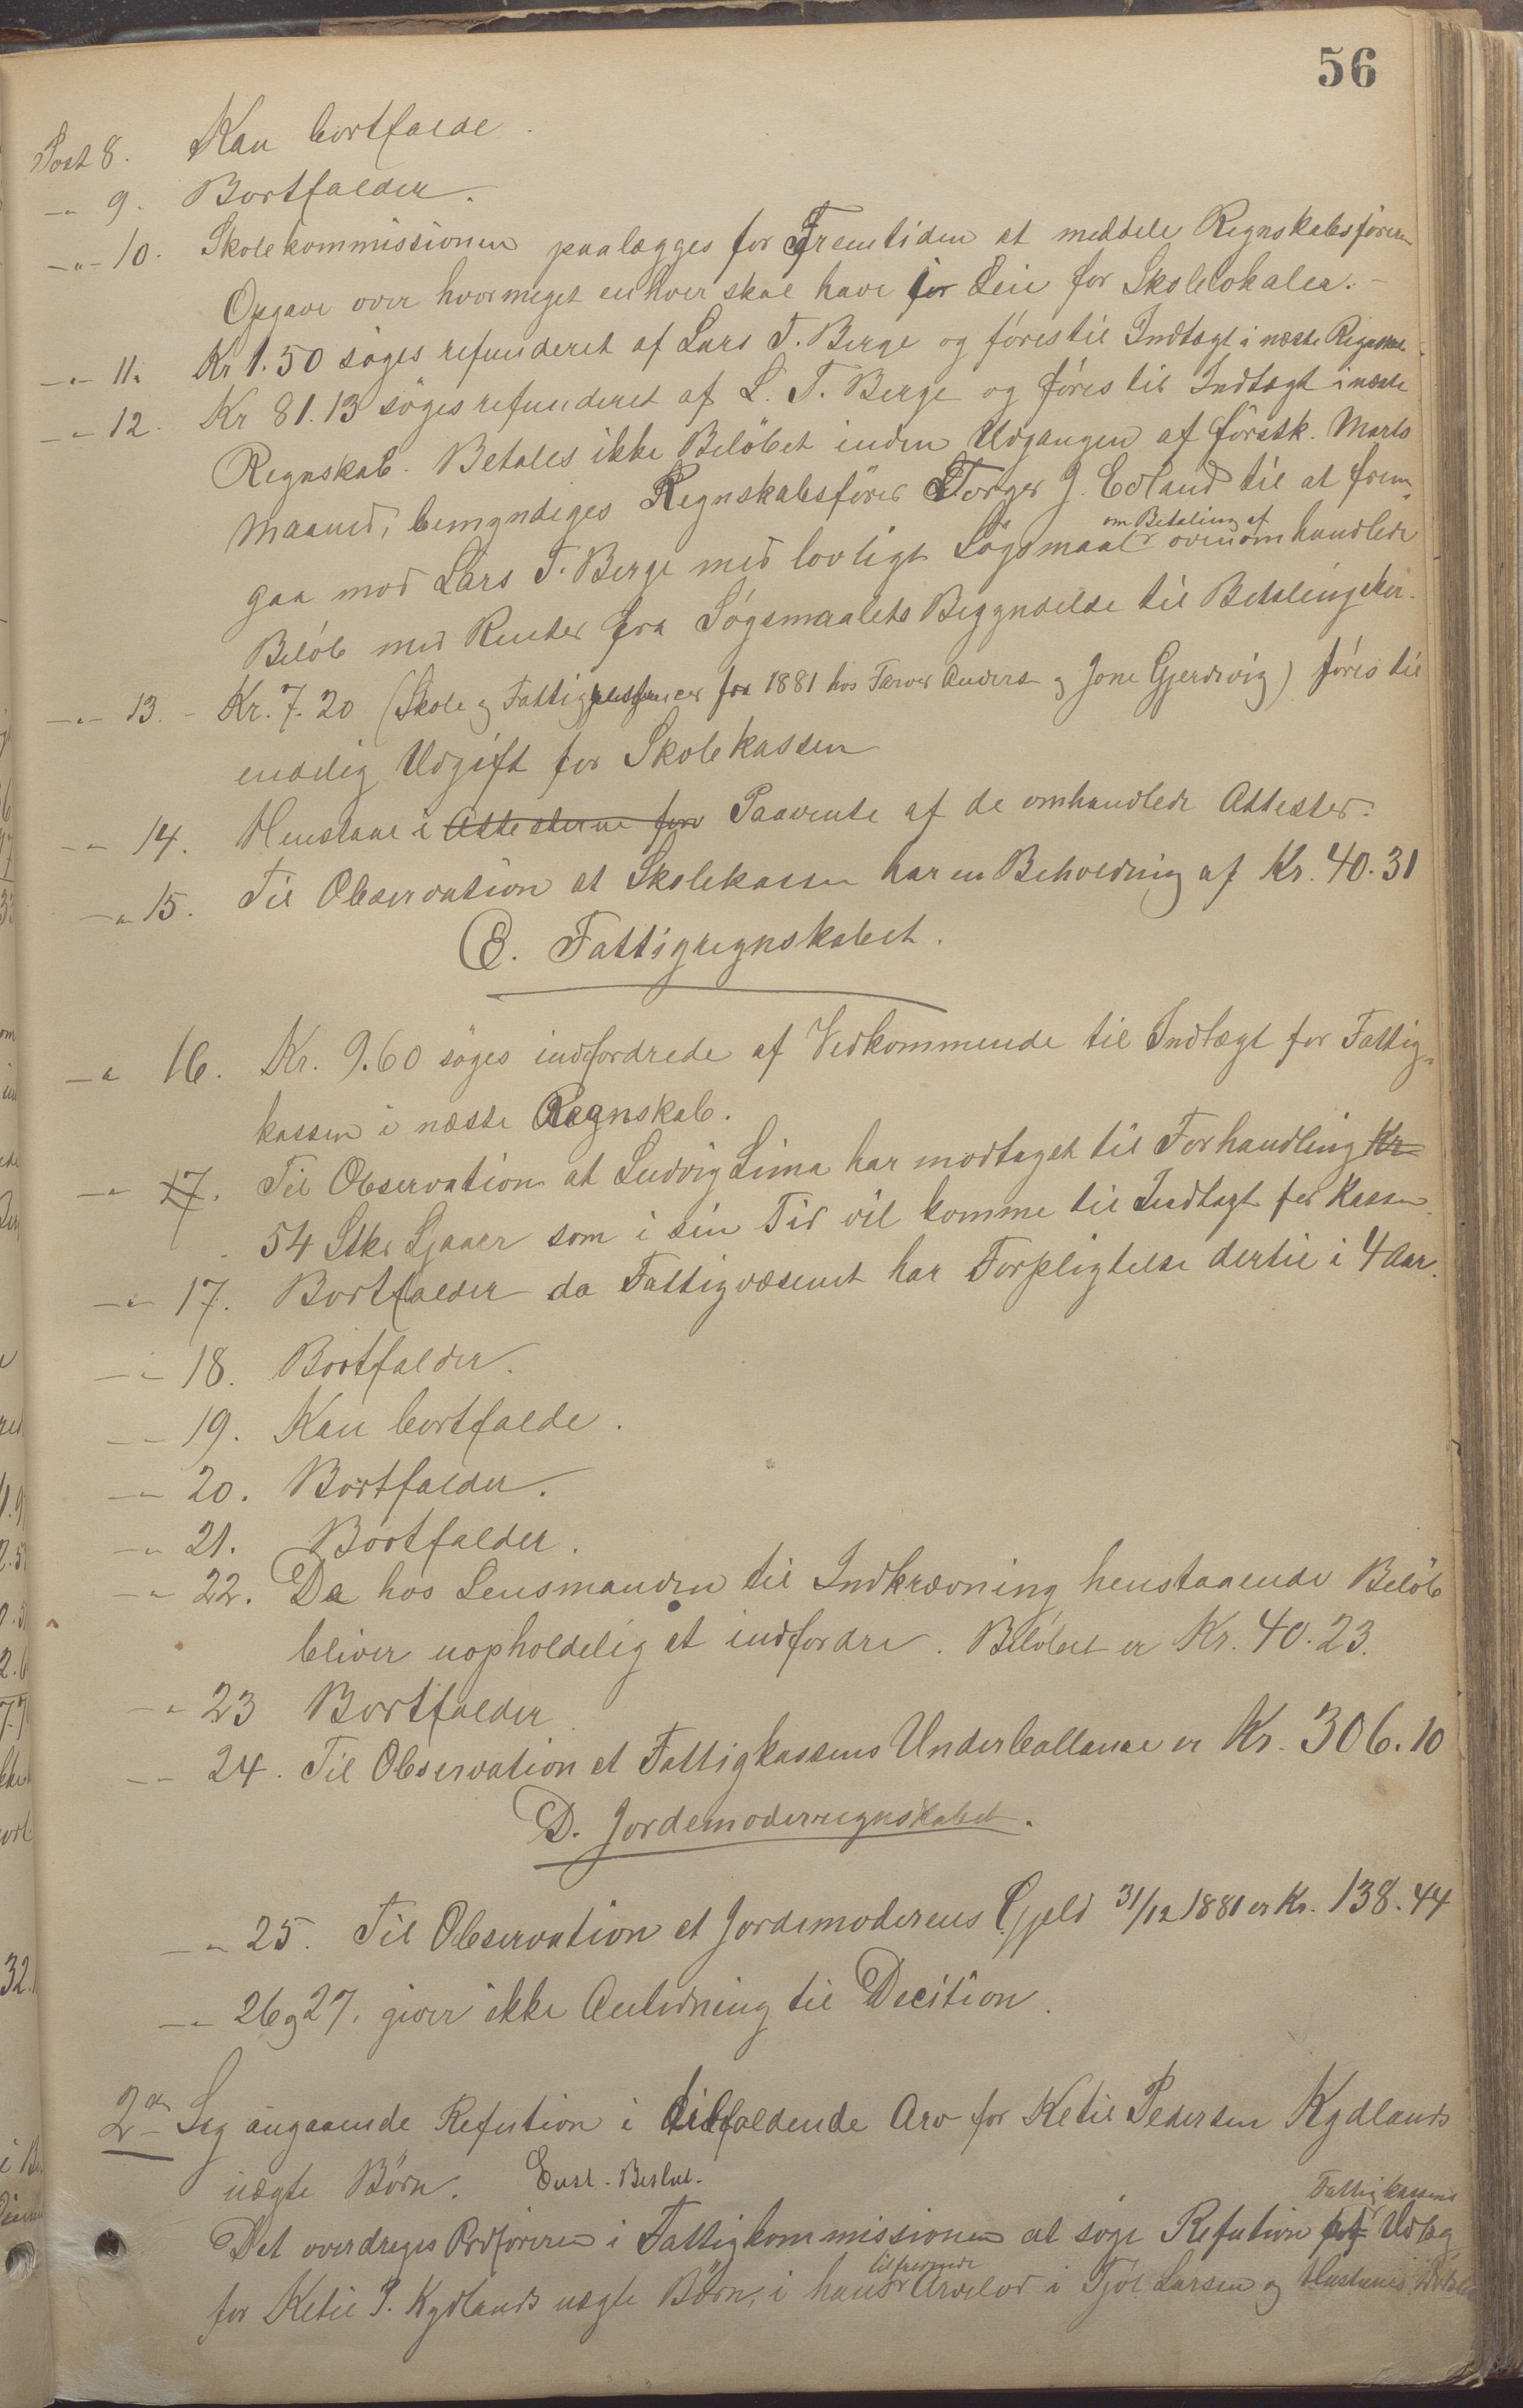 56
Post 8. Kan bortfalde.
-"- 9. Bortfalder.
-"- 10. Skolekommissionen paalægges for Fremtiden at meddele Regnskabsføreren
Opgave over hvormeget enhver skal have for Leie for Skolelokaler.-
-"- 11. Kr 1.50 søges refunderet af Lars T. Berge og føres til Indtægt i næste Regnskab.
-"- 12. Kr 81.13 søges refunderet af L. T. Berge og føres til Indtægt i næste
Regnskab. Betales ikke Beløbet inden Udgangen af førstk. Marts
Maaned, bemyndiges Regnskabsfører Torger J. Edland til at frem-
om Betaling af
gaa mod Lars T. Berge med lovligt Søgsmaal ovenomhandlede
Beløb med Renter fra Søgsmaalets Begyndelse til Betaling sker.
-"- 13. - Kr. 7.20 (Skole og Fattig for 1881 hos Farver Anders og Jone Gjerdevig) føres til
endelig Udgift for Skolekassen
-"- 14. Henstaar i Attesterne for Paavente af de omhandlede Attester.
-"- 15. Til Observation at Skolekassen har en Beholdning af Kr. 40.31
C. Fattigregnskabet.
-"- 16. Kr. 9.60 søges indfordrede af Vedkommende til Indtægt for Fattig-
kassen i næste Regnskab.
-"- 17. Til Observation at Ludvig Lima har modtaget til Forhandling Kr
54 Stkr Ljaaer som i sin Tid vil komme til Indtægt for Kassen.
-"- 17. Bortfalder da Fattigvæsenet har Forpligtelse dertil i 4 Aar.
-"- 18. Bortfalder.
-"- 19. Kan bortfalde.
-"- 20. Bortfalder.
-"- 21. Bortfalder.
-"- 22. De hos Lensmanden til Indkrævning henstaaende Beløb
bliver uopholdelig at indfordre. Beløbet er Kr. 40.23.
-"- 23 Bortfalder.
-"- 24. Til Observation at Fattigkassens Underballance er Kr. 306.10
D. Jordemoderregnskabet.
-"- 25. Til Observation at Jordemoderens Gjeld 31/12 1881 er Kr. 138.44
-"- 26 og 27. giver ikke Anledning til Decition.
2den Sag angaaende Refution i tilfaldende Arv for Ketil Pedersen Kydlands
uægte Børn. Enst. Beslut.
Fattigkassens
Det overdrages Ordføreren i Fattigkommissionen at søge Refution for Udlæg
tilfaldende
for Ketil P. Kydlands uægte Børn, i hans Arvelod i Tjøl Larsen og Hustrues